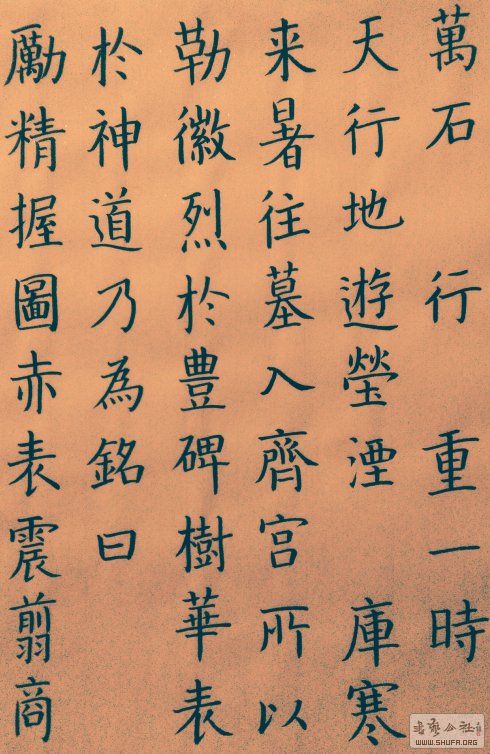 萬石 行 重一時
天行地遊瑩湮 庫寒
来暑往墓入齊宮所以
勒徽烈於豊碑樹華表
於神道乃為銘曰
勵精握圖赤表震翦商
WWW.SHUFA.ORG